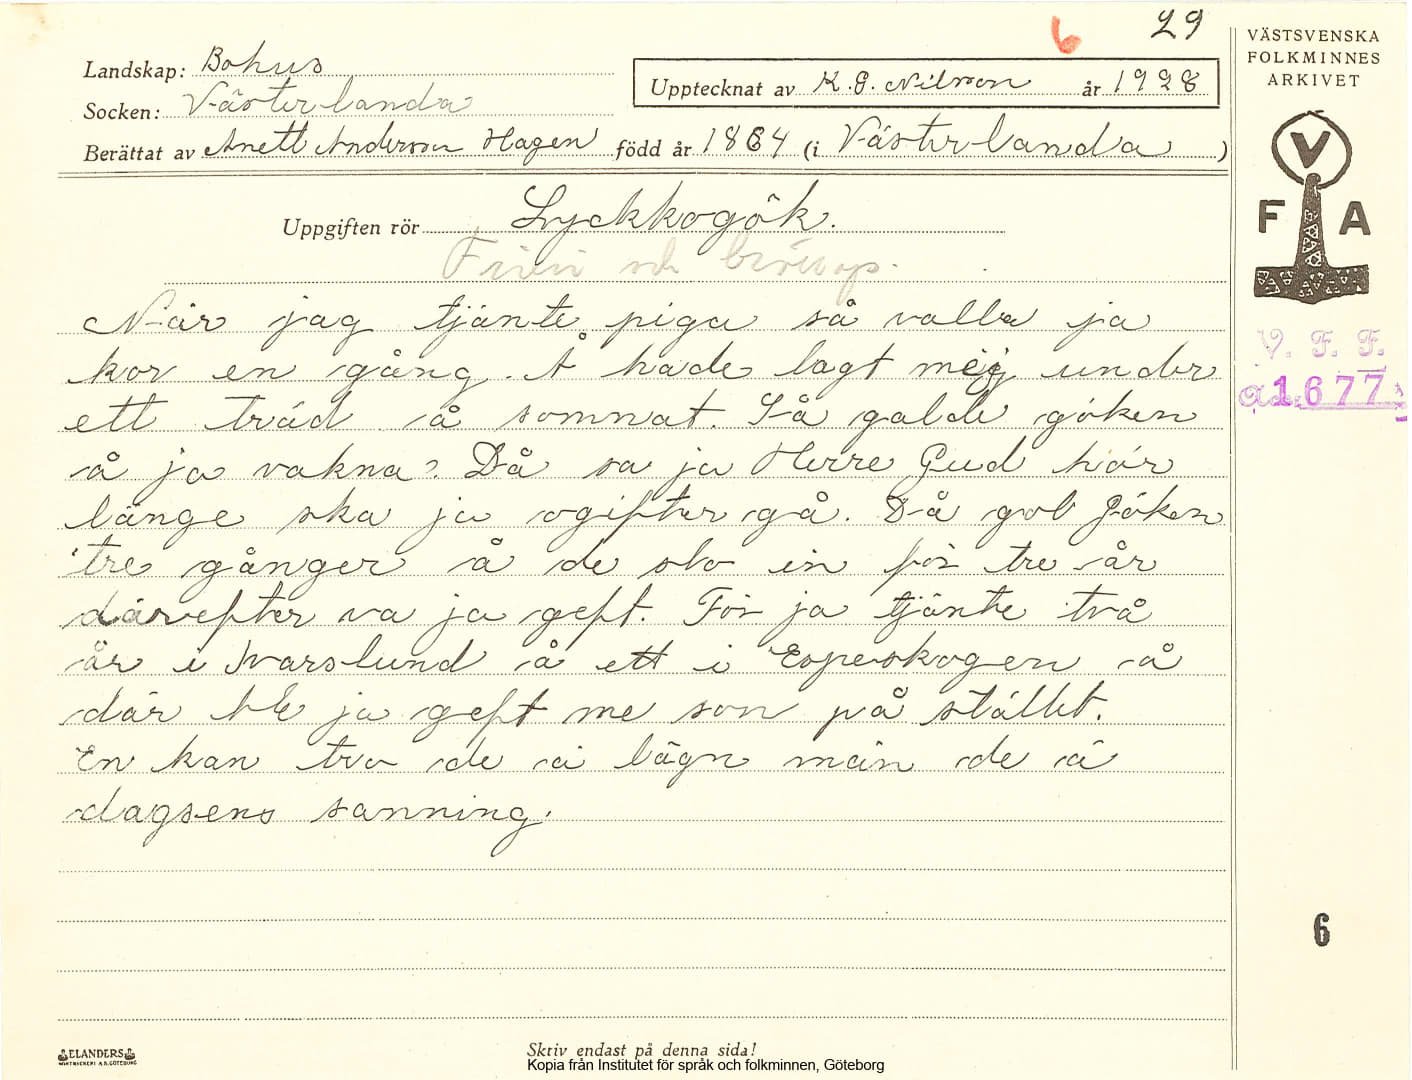 6 29
Landskap: Bohus
Socken: Västerlanda
Upptecknat av K. G. Nilsson år 1928
Berättat av Anett Anderson Hagen född år 1864 (i Västerlanda)
Uppgiften rör Lyckkogök.
Frieri och bröllop.
När jag tjänte piga så valla ja
kor en gång. Å hade lagt mejj under
ett träd å somnat. Så galde göken
å ja vakna. Då sa ja Herre Gud hör
länge ska ja ogifter gå. Då gol Göken
tre gånger å de slo in för tre år
därefter va ja geft. För ja tjänte två
år i Ivarslund å ett i Espeskogen å
där ble ja geft me son på stället.
En kan tro de ä lägn män de ä
dagsens sanning.
VÄSTSVENSKA
FOLKMINNES
ARKIVET
V
F A
V. F. F.
1677
6
ELANDERS
Skriv endast på denna sida!
Kopia från Institutet för språk och folkminnen, Göteborg